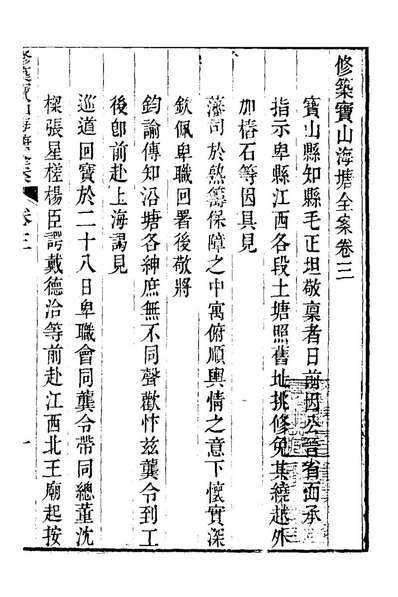 修築寶山海塘全案卷三
寶山縣知縣毛正坦敬稟者日前因公晉省面承
指示卑縣江西各段土塘照舊地挑修免其繞越外
加樁石等因具見
藩司於熟籌保障之中寓俯順輿情之意下懷實深
欽佩卑職回署後敬將
鈞諭傳知沿塘各紳庶無不同聲歡忭兹龔令到工
後卽前赴上海謁見
巡道回寶於二十八日卑職會同龔令帶同總董沈
樑張星槎楊臣諤戴德洽等前赴江西北王廟起按
修築寶山海塘全案
卷三
一